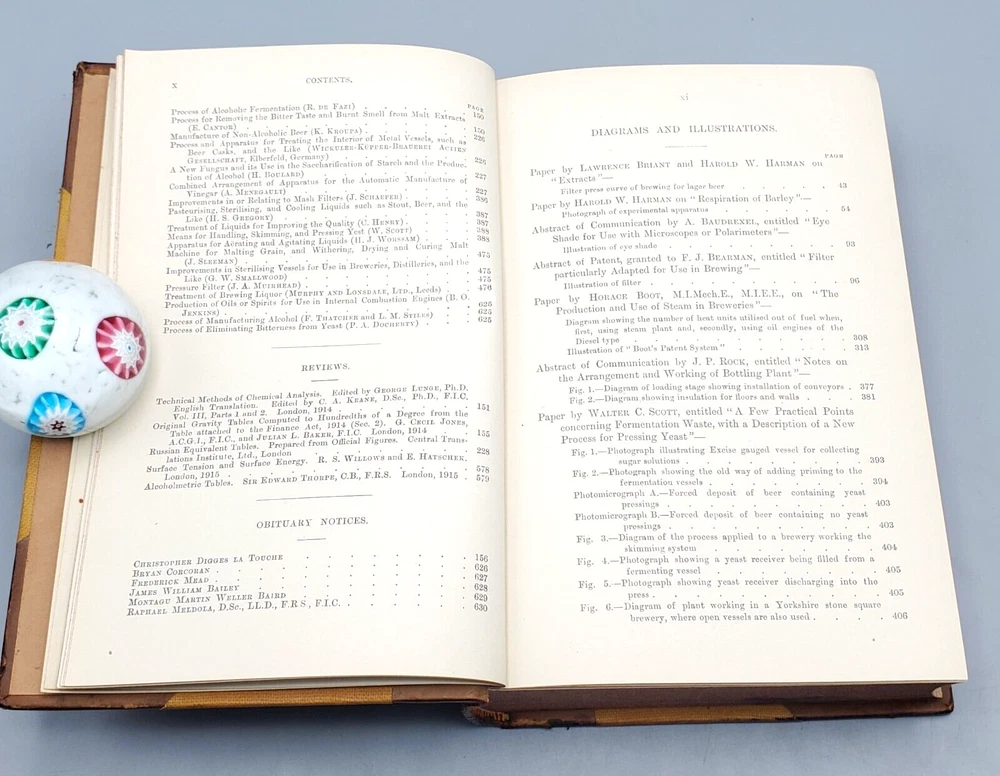 x
CONTENTS.
PAGE
Process of Alcoholic Fermentation (R. DE FAZI) . . . . . . 150
Process for Removing the Bitter Taste and Burnt Smell from Malt Extracts
(E. CANTOR) . . . . . . . . . 150
Manufacture of Non-Alcoholic Beer (K. KROUPA) . . . . . 226
Process and Apparatus for Treating the Interior of Metal Vessels, such as
Beer Casks, and the Like (WICKULER-KUPPER-BRAUEREI ACTIEN
GESELLSCHAFT, Elberfeld, Germany) . . . . . . 226
A New Fungus and its Use in the Saccharification of Starch and the Produc-
tion of Alcohol (H. BOULARD) . . . . . . . 227
Combined Arrangement of Apparatus for the Automatic Manufacture of
Vinegar (A. MENEGAULT) . . . . . . . 227
Improvements in or Relating to Mash Filters (J. SCHAEFER) . . . 386
Pasteurising, Sterilising, and Cooling Liquids such as Stout, Beer, and the
Like (H. S. GREGORY) . . . . . . . 387
Treatment of Liquids for Improving the Quality (C. HENRY) . . . 387
Means for Handling, Skimming, and Pressing Yeast (W. SCOTT) . . 388
Apparatus for Aërating and Agitating Liquids (H. J. WORSSAM) . . 388
Machine for Malting Grain, and Withering, Drying and Curing Malt
(J. SLEEMAN) . . . . . . . . 475
Improvements in Sterilising Vessels for Use in Breweries, Distilleries, and the
Like (G. W. SMALLWOOD) . . . . . . . 475
Pressure Filter (J. A. MUIRHEAD) . . . . . . . 475
Treatment of Brewing Liquor (MURPHY AND LONSDALE, LTD., Leeds) . . 476
Production of Oils or Spirits for Use in Internal Combustion Engines (B. O.
JENKINS) . . . . . . . . . 625
Process of Manufacturing Alcohol (F. THATCHER and L. M. STILES) . . 625
Process of Eliminating Bitterness from Yeast (P. A. DOCHERTY) . . . 625
REVIEWS.
Technical Methods of Chemical Analysis. Edited by GEORGE LUNGE, Ph.D.
English Translation. Edited by C. A. KEANE, D.Sc., Ph.D., F.I.C.
Vol. III, Parts 1 and 2. London, 1914 . . . . . . 151
Original Gravity Tables Computed to Hundredths of a Degree from the
Table attached to the Finance Act, 1914 (Sec. 2). G. CECIL JONES,
A.C.G.I., F.I.C., and JULIAN L. BAKER, F.I.C. London, 1914 . . . 155
Russian Equivalent Tables. Prepared from Official Figures. Central Trans-
lations Institute, Ltd., London . . . . . . 228
Surface Tension and Surface Energy. R. S. WILLOWS and E. HATSCHEK.
London, 1915 . . . . . . . . . 578
Alcoholmetric Tables. SIR EDWARD THORPE, C.B., F.R.S. London, 1915 . 579
OBITUARY NOTICES.
CHRISTOPHER DIGGES LA TOUCHE . . . . . . . 156
BRYAN CORCORAN . . . . . . . . . 626
FREDERICK MEAD . . . . . . . . . 627
JAMES WILLIAM BAILEY . . . . . . . . 628
MONTAGU MARTIN WELLER BAIRD . . . . . . . 629
RAPHAEL MELDOLA, D.Sc., LL.D., F.R.S., F.I.C. . . . . . 630
xi
DIAGRAMS AND ILLUSTRATIONS.
PAGE
Paper by LAWRENCE BRIANT and HAROLD W. HARMAN on
"Extracts"—
Filter press curve of brewing for lager beer . . . . . 43
Paper by HAROLD W. HARMAN on "Respiration of Barley"—
Photograph of experimental apparatus . . . . . . 54
Abstract of Communication by A. BAUDREXEL, entitled "Eye
Shade for Use with Microscopes or Polarimeters"—
Illustration of eye shade . . . . . . . . 93
Abstract of Patent, granted to F. J. BEARMAN, entitled "Filter
particularly Adapted for Use in Brewing"—
Illustration of filter . . . . . . . . . 96
Paper by HORACE BOOT, M.I.Mech.E., M.I.E.E., on "The
Production and Use of Steam in Breweries"—
Diagram showing the number of heat units utilised out of fuel when,
first, using steam plant and, secondly, using oil engines of the
Diesel type . . . . . . . . . . 308
Illustration of "Boot's Patent System" . . . . . . 313
Abstract of Communication by J. P. ROCK, entitled "Notes on
the Arrangement and Working of Bottling Plant"—
Fig. 1.—Diagram of loading stage showing installation of conveyors . 377
Fig. 2.—Diagram showing insulation for floors and walls . . . 381
Paper by WALTER C. SCOTT, entitled "A Few Practical Points
concerning Fermentation Waste, with a Description of a New
Process for Pressing Yeast"—
Fig. 1.—Photograph illustrating Excise gauged vessel for collecting
sugar solutions . . . . . . . . 393
Fig. 2.—Photograph showing the old way of adding priming to the
fermentation vessels . . . . . . . 394
Photomicrograph A.—Forced deposit of beer containing yeast
pressings . . . . . . . . . 403
Photomicrograph B.—Forced deposit of beer containing no yeast
pressings . . . . . . . . . 403
Fig. 3.—Diagram of the process applied to a brewery working the
skimming system . . . . . . . . 404
Fig. 4.—Photograph showing a yeast receiver being filled from a
fermenting vessel . . . . . . . . 405
Fig. 5.—Photograph showing yeast receiver discharging into the
press . . . . . . . . . . 405
Fig. 6.—Diagram of plant working in a Yorkshire stone square
brewery, where open vessels are also used . . . . 406